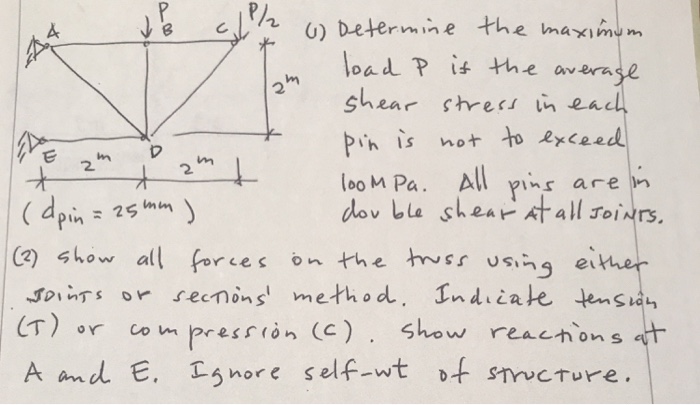 P
P/2
A
B
C
2m
E
D
2m
2m
(dpin = 25mm)
(1) Determine the maximum
load P if the average
shear stress in each
pin is not to exceed
100 MPa. All pins are in
double shear at all joints.
(2) show all forces on the truss using either
joints or sections' method. Indicate tension
(T) or compression (C). Show reactions at
A and E. Ignore self-wt of structure.